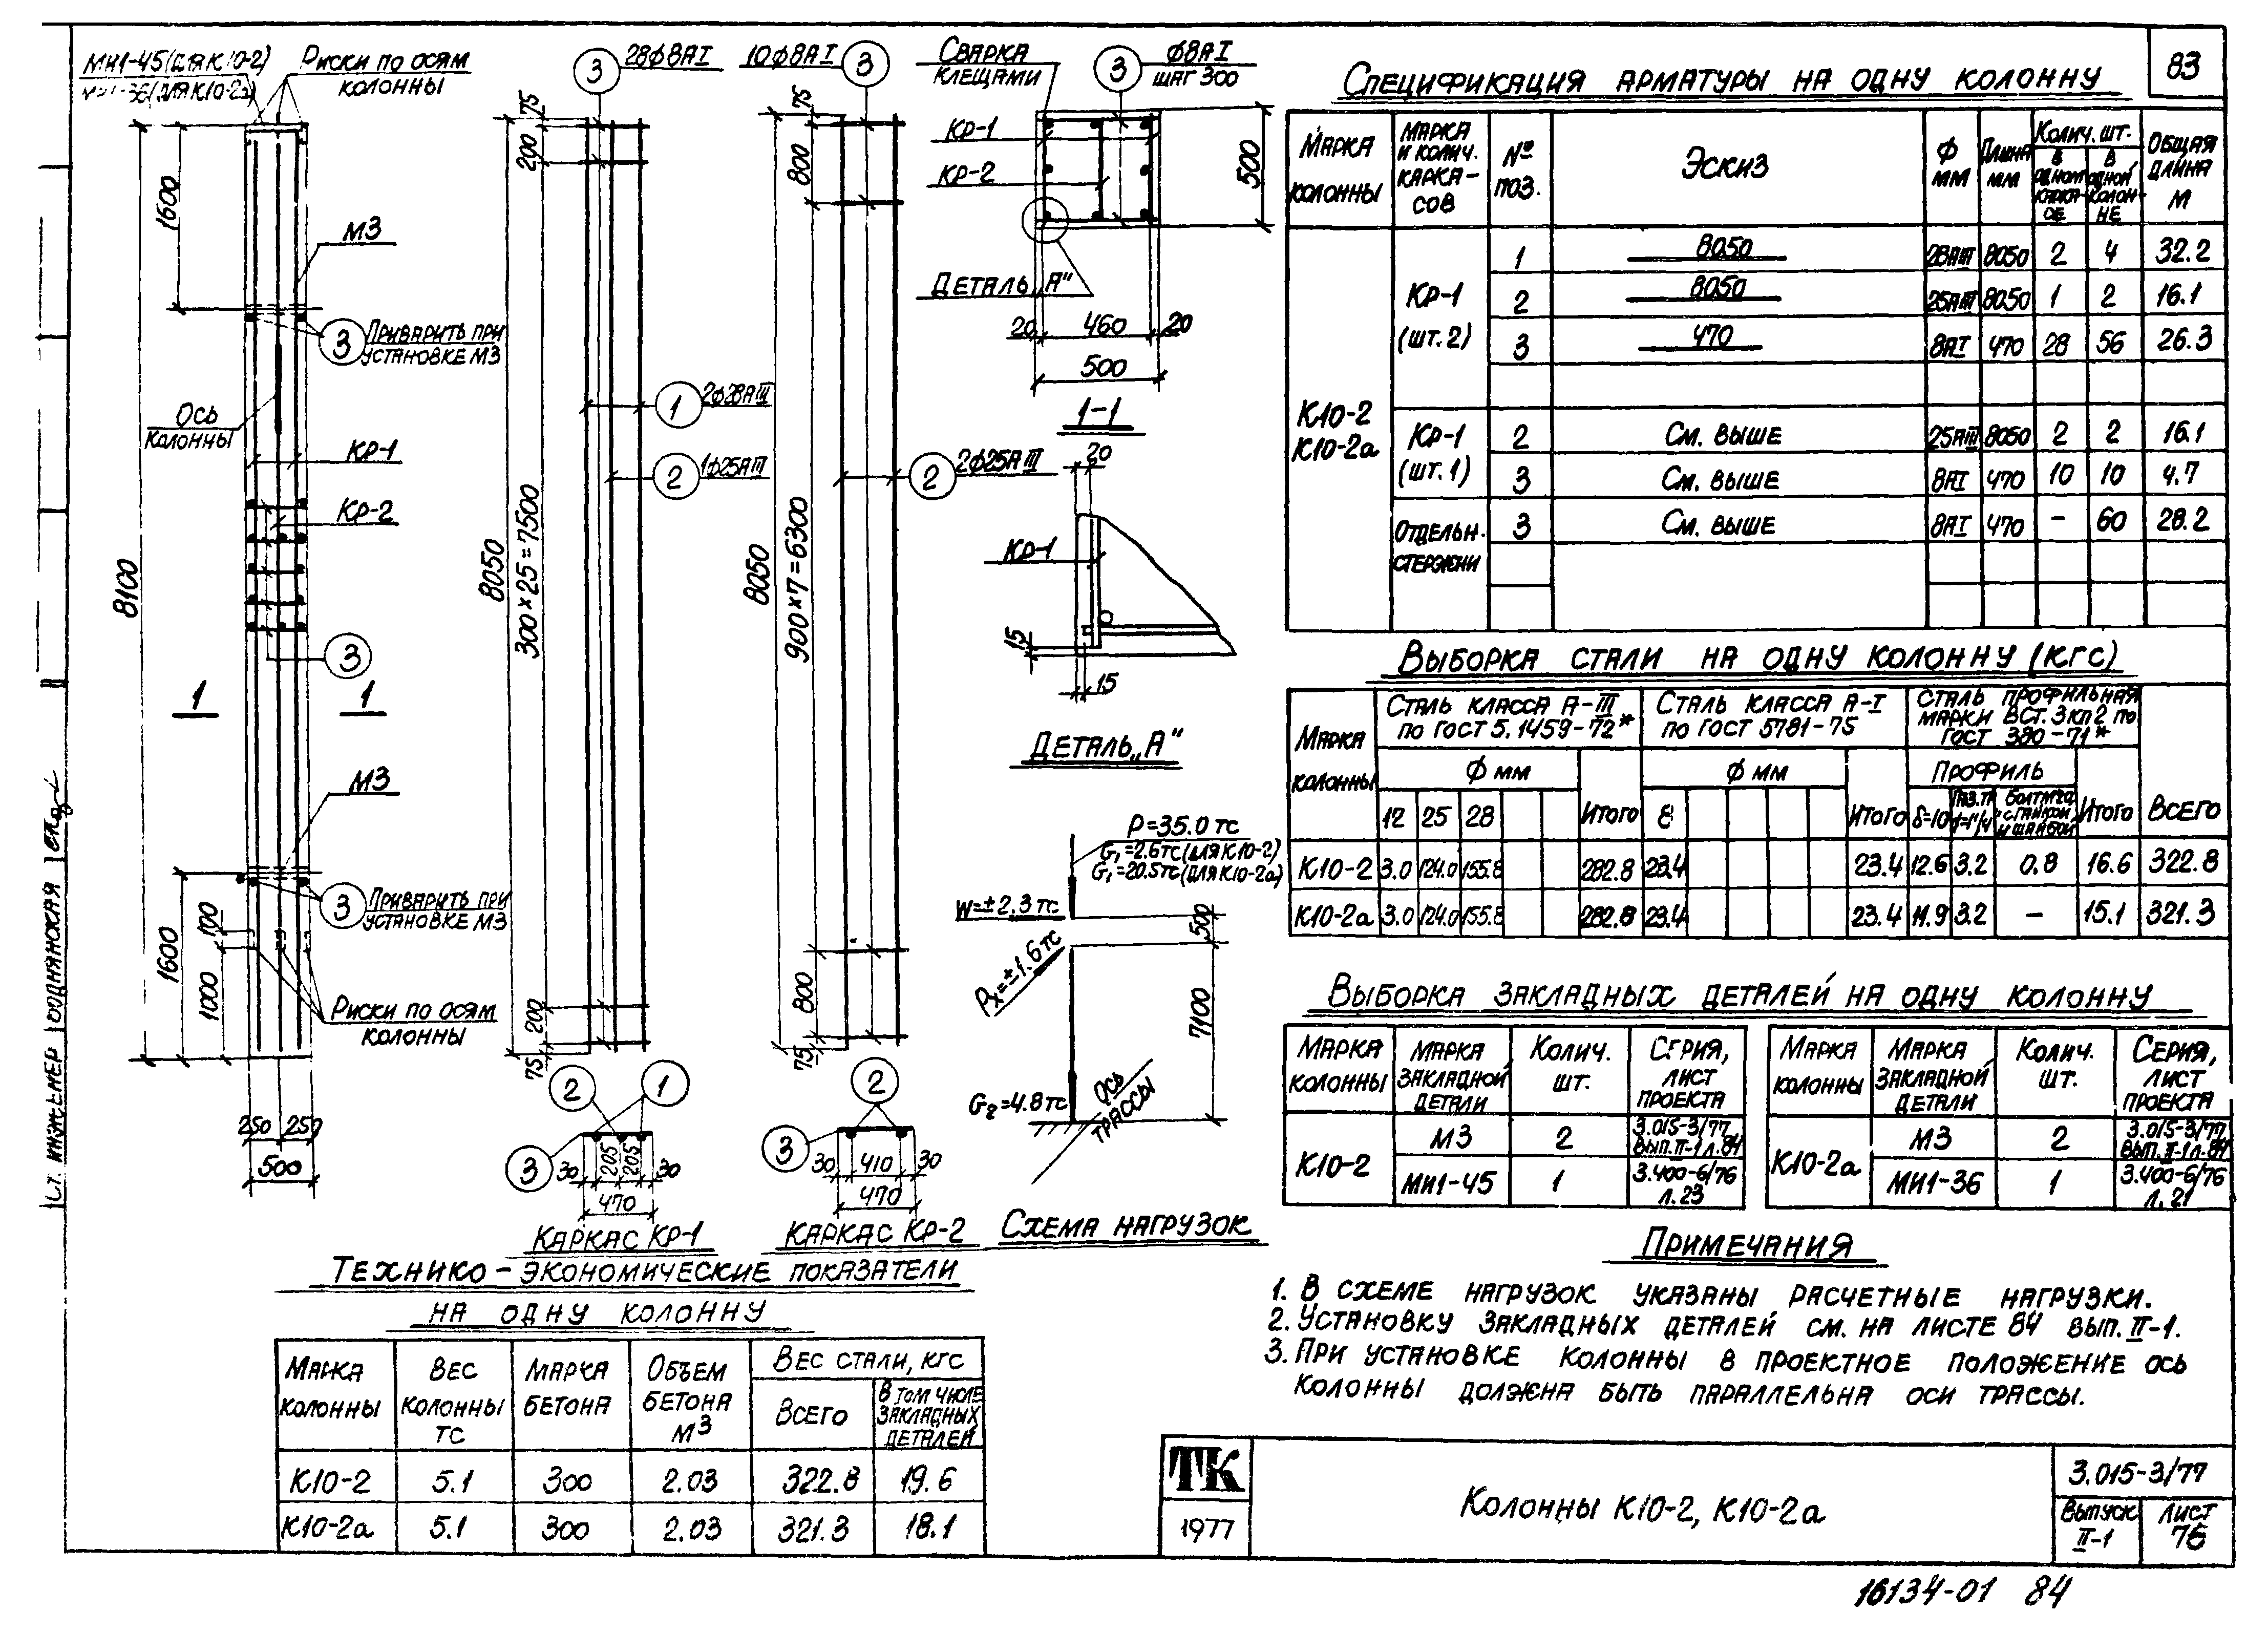 83
МИ1-45(для К10-2)
МИ1-36(для К10-2а)
Риски по осям
колонны
8100
1600
М3
3
Приварить при
установке М3
Ось
колонны
КР-1
КР-2
3
1
1
М3
3
Приварить при
установке М3
1600
1000
100
Риски по осям
колонны
250
250
500
3
28ф8АI
75
200
8050
300×25=7500
1
2ф28АIII
2
1ф25АIII
200
75
2
1
3
30
205
205
30
470
Каркас КР-1
10ф8АI
3
75
800
8050
900×7=6300
2
2ф25АIII
800
75
2
3
30
410
30
470
Каркас КР-2
Сварка
клещами
3
ф8АI
шаг 300
КР-1
КР-2
500
Деталь „А"
20
460
20
500
1-1
20
КР-1
15
15
Деталь „А"
P=35.0 тс
G₁=2.6тс(для К10-2)
G₁=20.5тс(для К10-2а)
W=±2.3 тс
500
Pх=±1.6 тс
7100
G₂=4.8тс
Ось
трассы
Схема нагрузок
Спецификация арматуры на одну колонну
Марка колонны
Марка и колич. каркасов
№ поз.
Эскиз
ф мм
Длина мм
Колич. шт.
в одном каркасе
в одной колонне
Общая длина м
К10-2
К10-2а
КР-1
(шт.2)
1 8050 28АIII 8050 2 4 32.2
2 8050 25АIII 8050 1 2 16.1
3 470 8АI 470 28 56 26.3
КР-1
(шт.1)
2 См. выше 25АIII 8050 2 2 16.1
3 См. выше 8АI 470 10 10 4.7
Отдельн.
стержни
3 См. выше 8АI 470 - 60 28.2
Выборка стали на одну колонну (кгс)
Марка колонны
Сталь класса А-III
по ГОСТ 5.1459-72*
Сталь класса А-I
по ГОСТ 5781-75
Сталь профильная
марки ВСт.3кп2 по
ГОСТ 380-71*
ф мм
ф мм
Профиль
12 25 28 Итого 8 Итого δ=10 Итого Всего
К10-2 3.0 124.0 155.8 282.8 23.4 23.4 12.6 3.2 0.8 16.6 322.8
К10-2а 3.0 124.0 155.8 282.8 23.4 23.4 11.9 3.2 - 15.1 321.3
Выборка закладных деталей на одну колонну
Марка колонны
Марка закладной детали
Колич. шт.
Серия, лист проекта
К10-2
М3 2 3.015-3/77 вып.II-1 л.84
МИ1-45 1 3.400-6/76 л.23
Марка колонны
Марка закладной детали
Колич. шт.
Серия, лист проекта
К10-2а
М3 2 3.015-3/77 вып.II-1 л.84
МИ1-36 1 3.400-6/76 л.21
Примечания
1. В схеме нагрузок указаны расчетные нагрузки.
2. Установку закладных деталей см. на листе 84 вып. II-1.
3. При установке колонны в проектное положение ось
колонны должна быть параллельна оси трассы.
Технико-экономические показатели
на одну колонну
Марка колонны
Вес колонны тс
Марка бетона
Объем бетона м3
Вес стали, кгс
Всего
В том числе закладных деталей
К10-2 5.1 300 2.03 322.8 19.6
К10-2а 5.1 300 2.03 321.3 18.1
ТК
1977
Колонны К10-2, К10-2а
3.015-3/77
Выпуск
II-1
Лист
75
16134-01 84
Ст. инженер